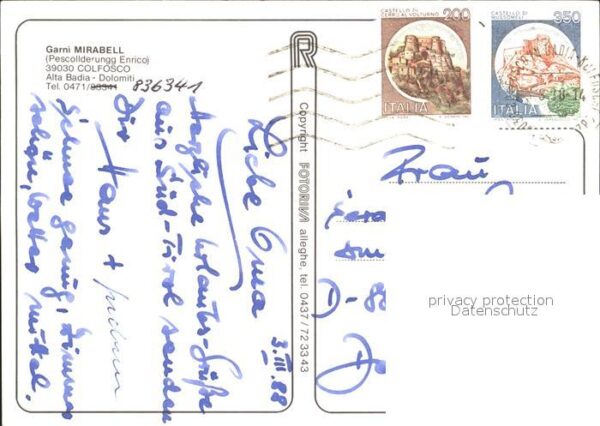 Garni MIRABELL
(Pescollderungg Enrico)
39030 COLFOSCO
Alta Badia - Dolomiti
Tel. 0471/83341 836341
3.III.88
Liebe Oma
Herzliche Urlaubs-Grüße
aus Süd-Tirol senden
Dir Hans +
Schnee genug, Zimmer
schön, Wetter
mittel.
R
Copyright FOTORIVA alleghe, tel. 0437/723343
CASTELLO DI
CERRO AL VOLTURNO
200
ITALIA
CASTELLO DI
MUSSOMELI
350
ITALIA
Frau
D-8
privacy protection
Datenschutz